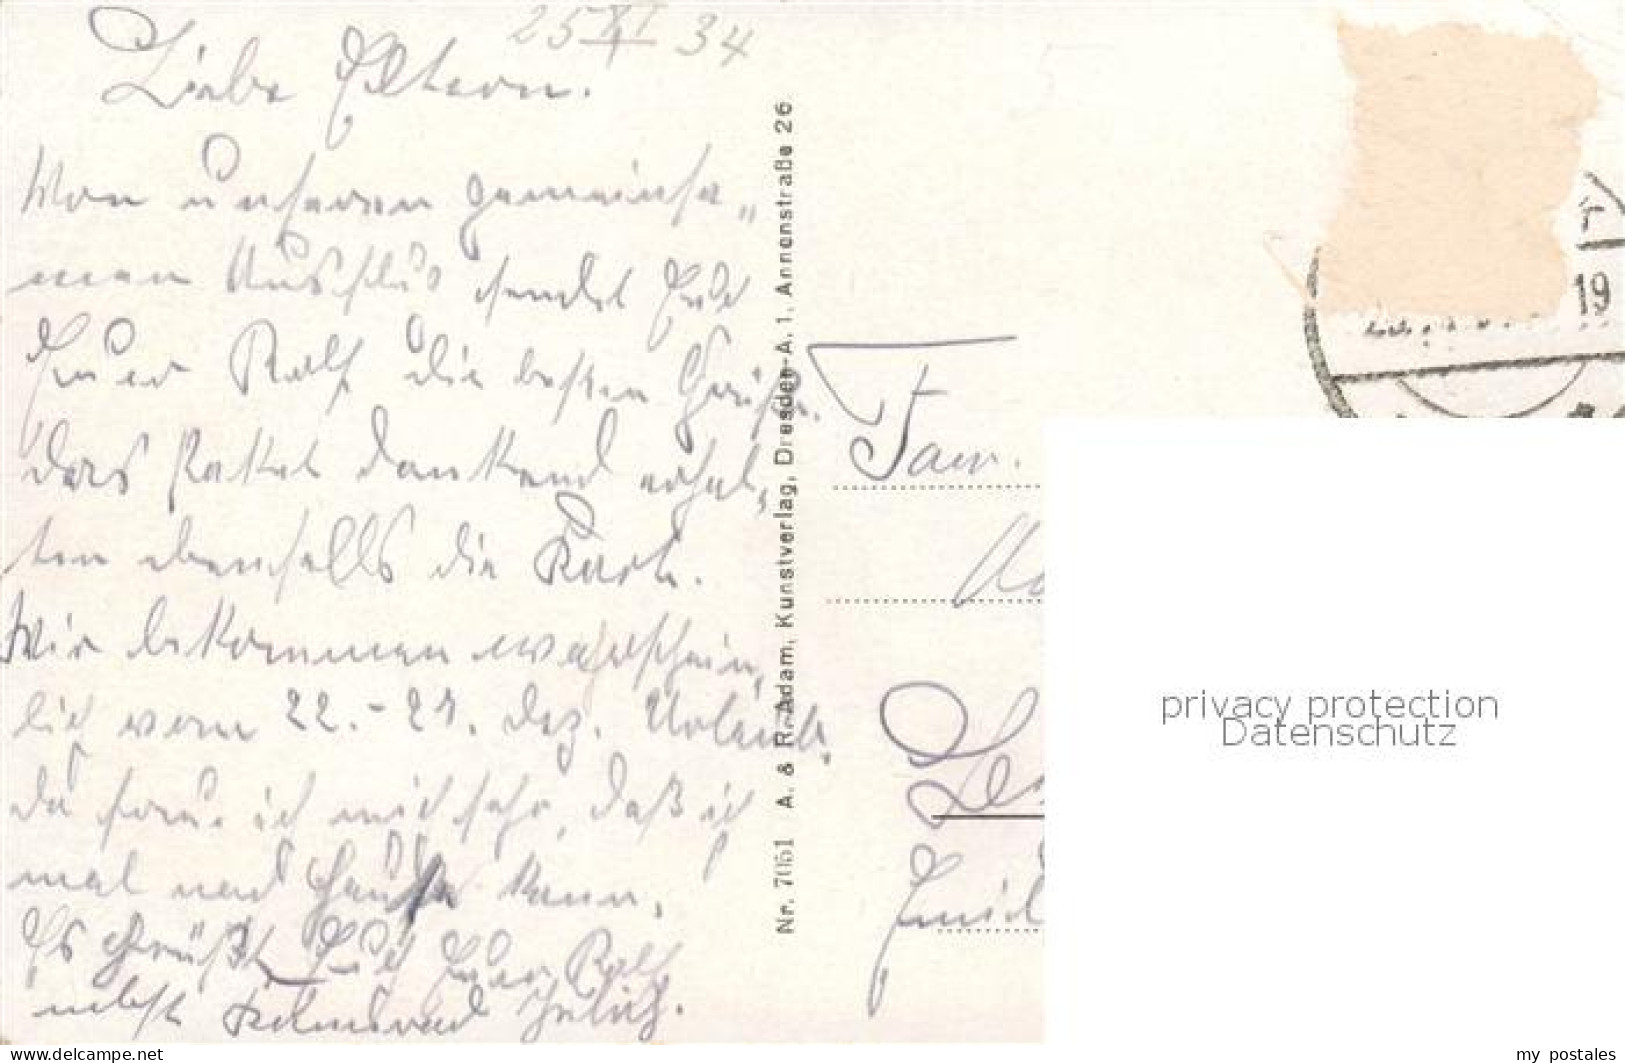 25 XI 34
Liebe Eltern.
Von unseren gemeinsa„
men Ausflug sendet Euch
Euer Rolf die besten Grüße.
Das Paket dankend erhal„
ten ebenfalls die Karte.
Wir bekommen wahrschein„
lich vom 22.-27. Dez. Urlaub,
da freue ich mich sehr, daß ich
mal nach Hause kann.
Es Grüßt Euch Euer Rolf
nebst
Nr. 7061 A. & R. Adam, Kunstverlag, Dresden-A. 1, Annenstraße 26
19
Fam.
privacy protection
Datenschutz
www.delcampe.net
my_postales